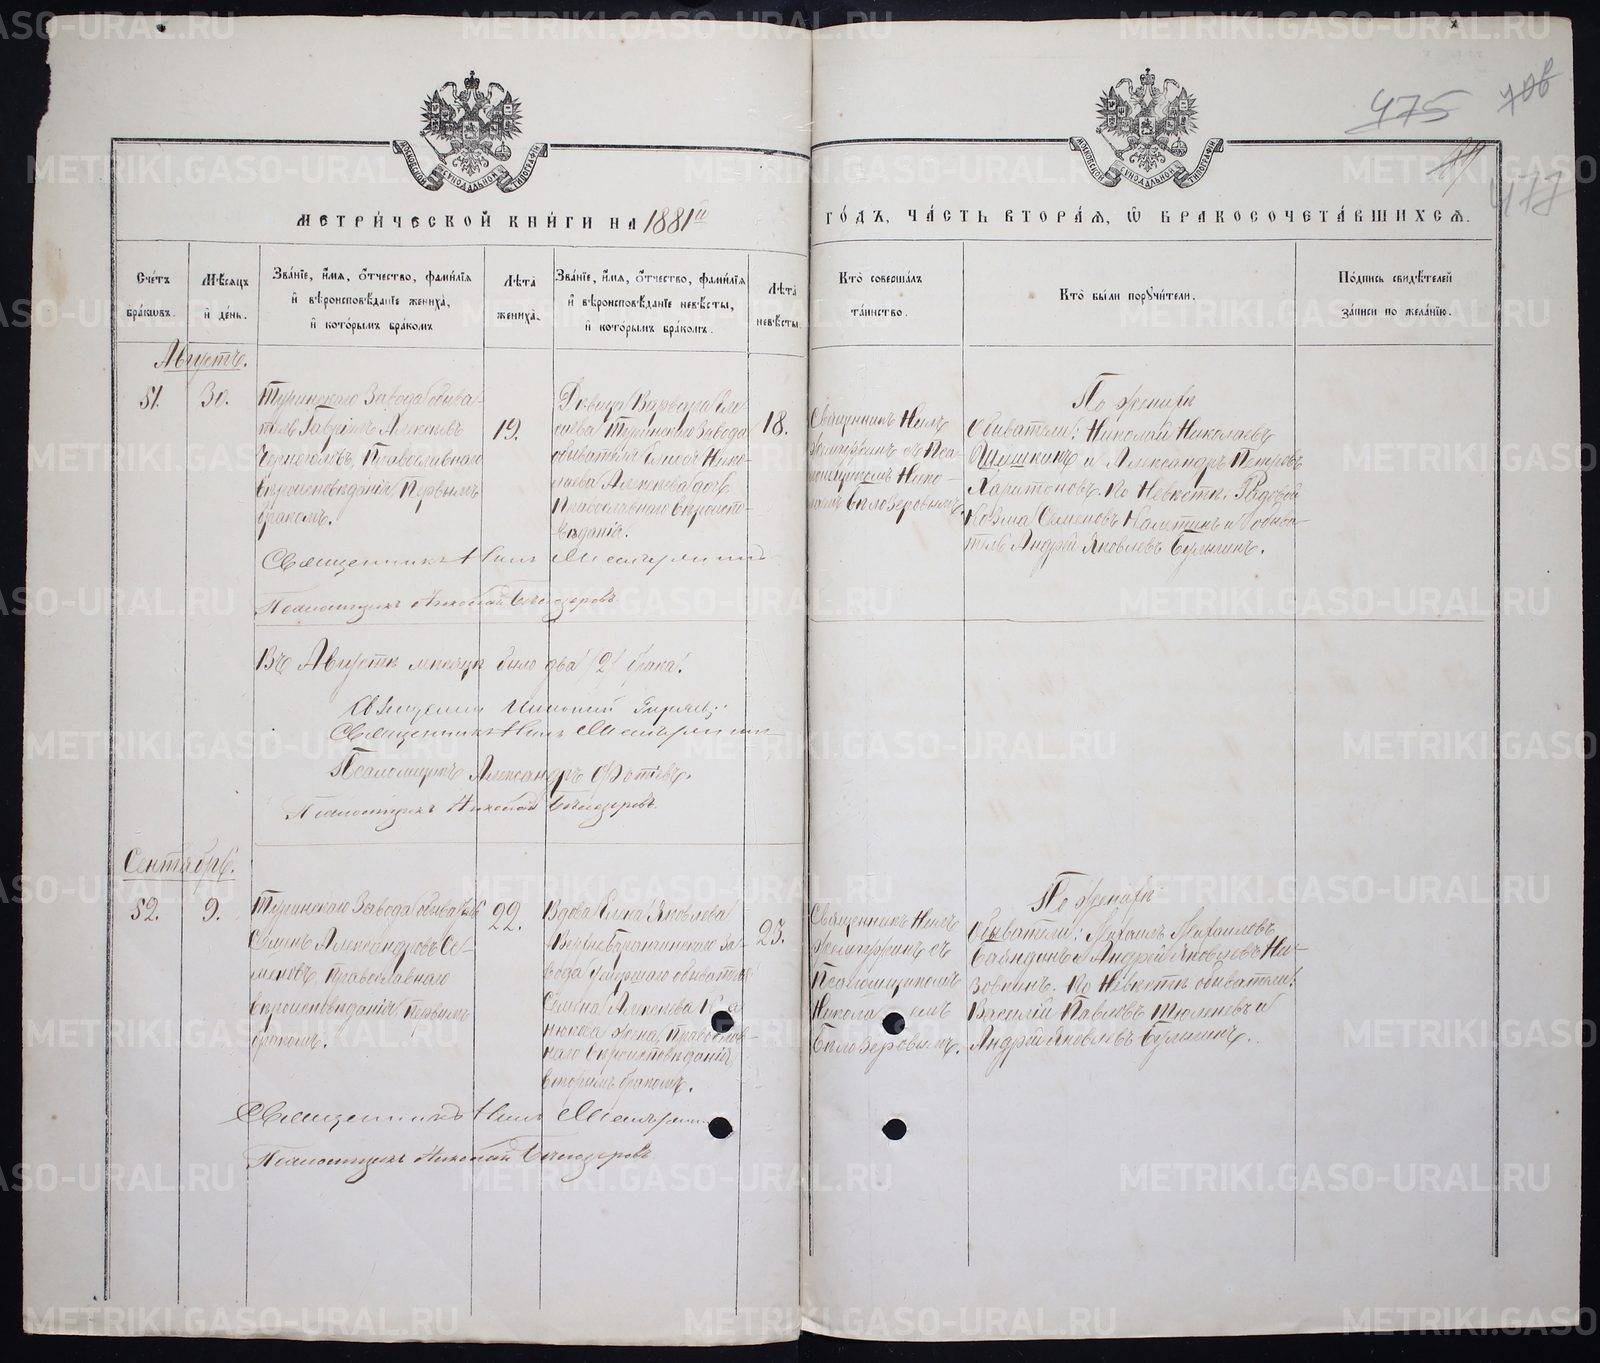 475
477
МЕТРИЧЕСКОЙ КНИГИ НА 1881й ГОДЪ, ЧАСТЬ ВТОРАЯ, Ѿ БРАКОСОЧЕТАВШИХСЯ.
Счетъ браковъ.
Мѣсяцъ и день.
Званіе, имя, отчество, фамилія
и вѣроисповѣданіе жениха,
и которымъ бракомъ
Лѣта жениха.
Званіе, имя, отчество, фамилія
и вѣроисповѣданіе невѣсты,
и которымъ бракомъ.
Лѣта невѣсты.
Кто совершалъ
таинство.
Кто были поручители.
Подпись свидѣтелей
записи по желанію.
Августъ.
51.
30.
Туринскаго Завода обыва-
тель Гавріилъ Алексѣевъ
Православнаго
вѣроисповѣданія Первымъ
бракомъ.
19.
Дѣвица Варвара
Туринскаго Завода
обывателя
Алексѣева дочь
Православнаго вѣроиспо-
вѣданія.
18.
Священникъ Нилъ
съ Пса-
ломщикомъ Нико-
лаемъ Бѣлозеровымъ.
По женихѣ
Обыватели: Николай Николаевъ
и Александръ Петровъ
Харитоновъ. По Невѣстѣ. Рядовой
Козма Семеновъ и обыва-
тель Андрей Яковлевъ Булыгинъ.
Священникъ Нилъ
Псаломщикъ Николай Бѣлозеровъ
Въ Августѣ мѣсяцѣ было два /2/ брака.
Священникъ
Священникъ Нилъ
Псаломщикъ Александръ Фотіевъ.
Псаломщикъ Николай Бѣлозеровъ
Сентябрь.
52.
9.
Туринскаго Завода обыватель
Семенъ Александровъ Се-
меновъ, православнаго
вѣроисповѣданія Первымъ
бракомъ.
22.
Вдова Яковлева
Верхнебаранчинскаго За-
вода умершаго обывателя
Семена Алексѣева
жена, Православ-
наго вѣроисповѣданія
вторымъ бракомъ.
23.
Священникъ Нилъ
съ
Псаломщикомъ
Николаемъ
Бѣлозеровымъ.
По женихѣ
Обыватели: Михаилъ Михаиловъ
и Андрей Яковлевъ Ни-
зовкинъ. По Невѣстѣ обыватели:
Василій Павловъ Тюленевъ и
Андрей Яковлевъ Булыгинъ.
Священникъ Нилъ
Псаломщикъ Николай Бѣлозеровъ
METRIKI.GASO-URAL.RU